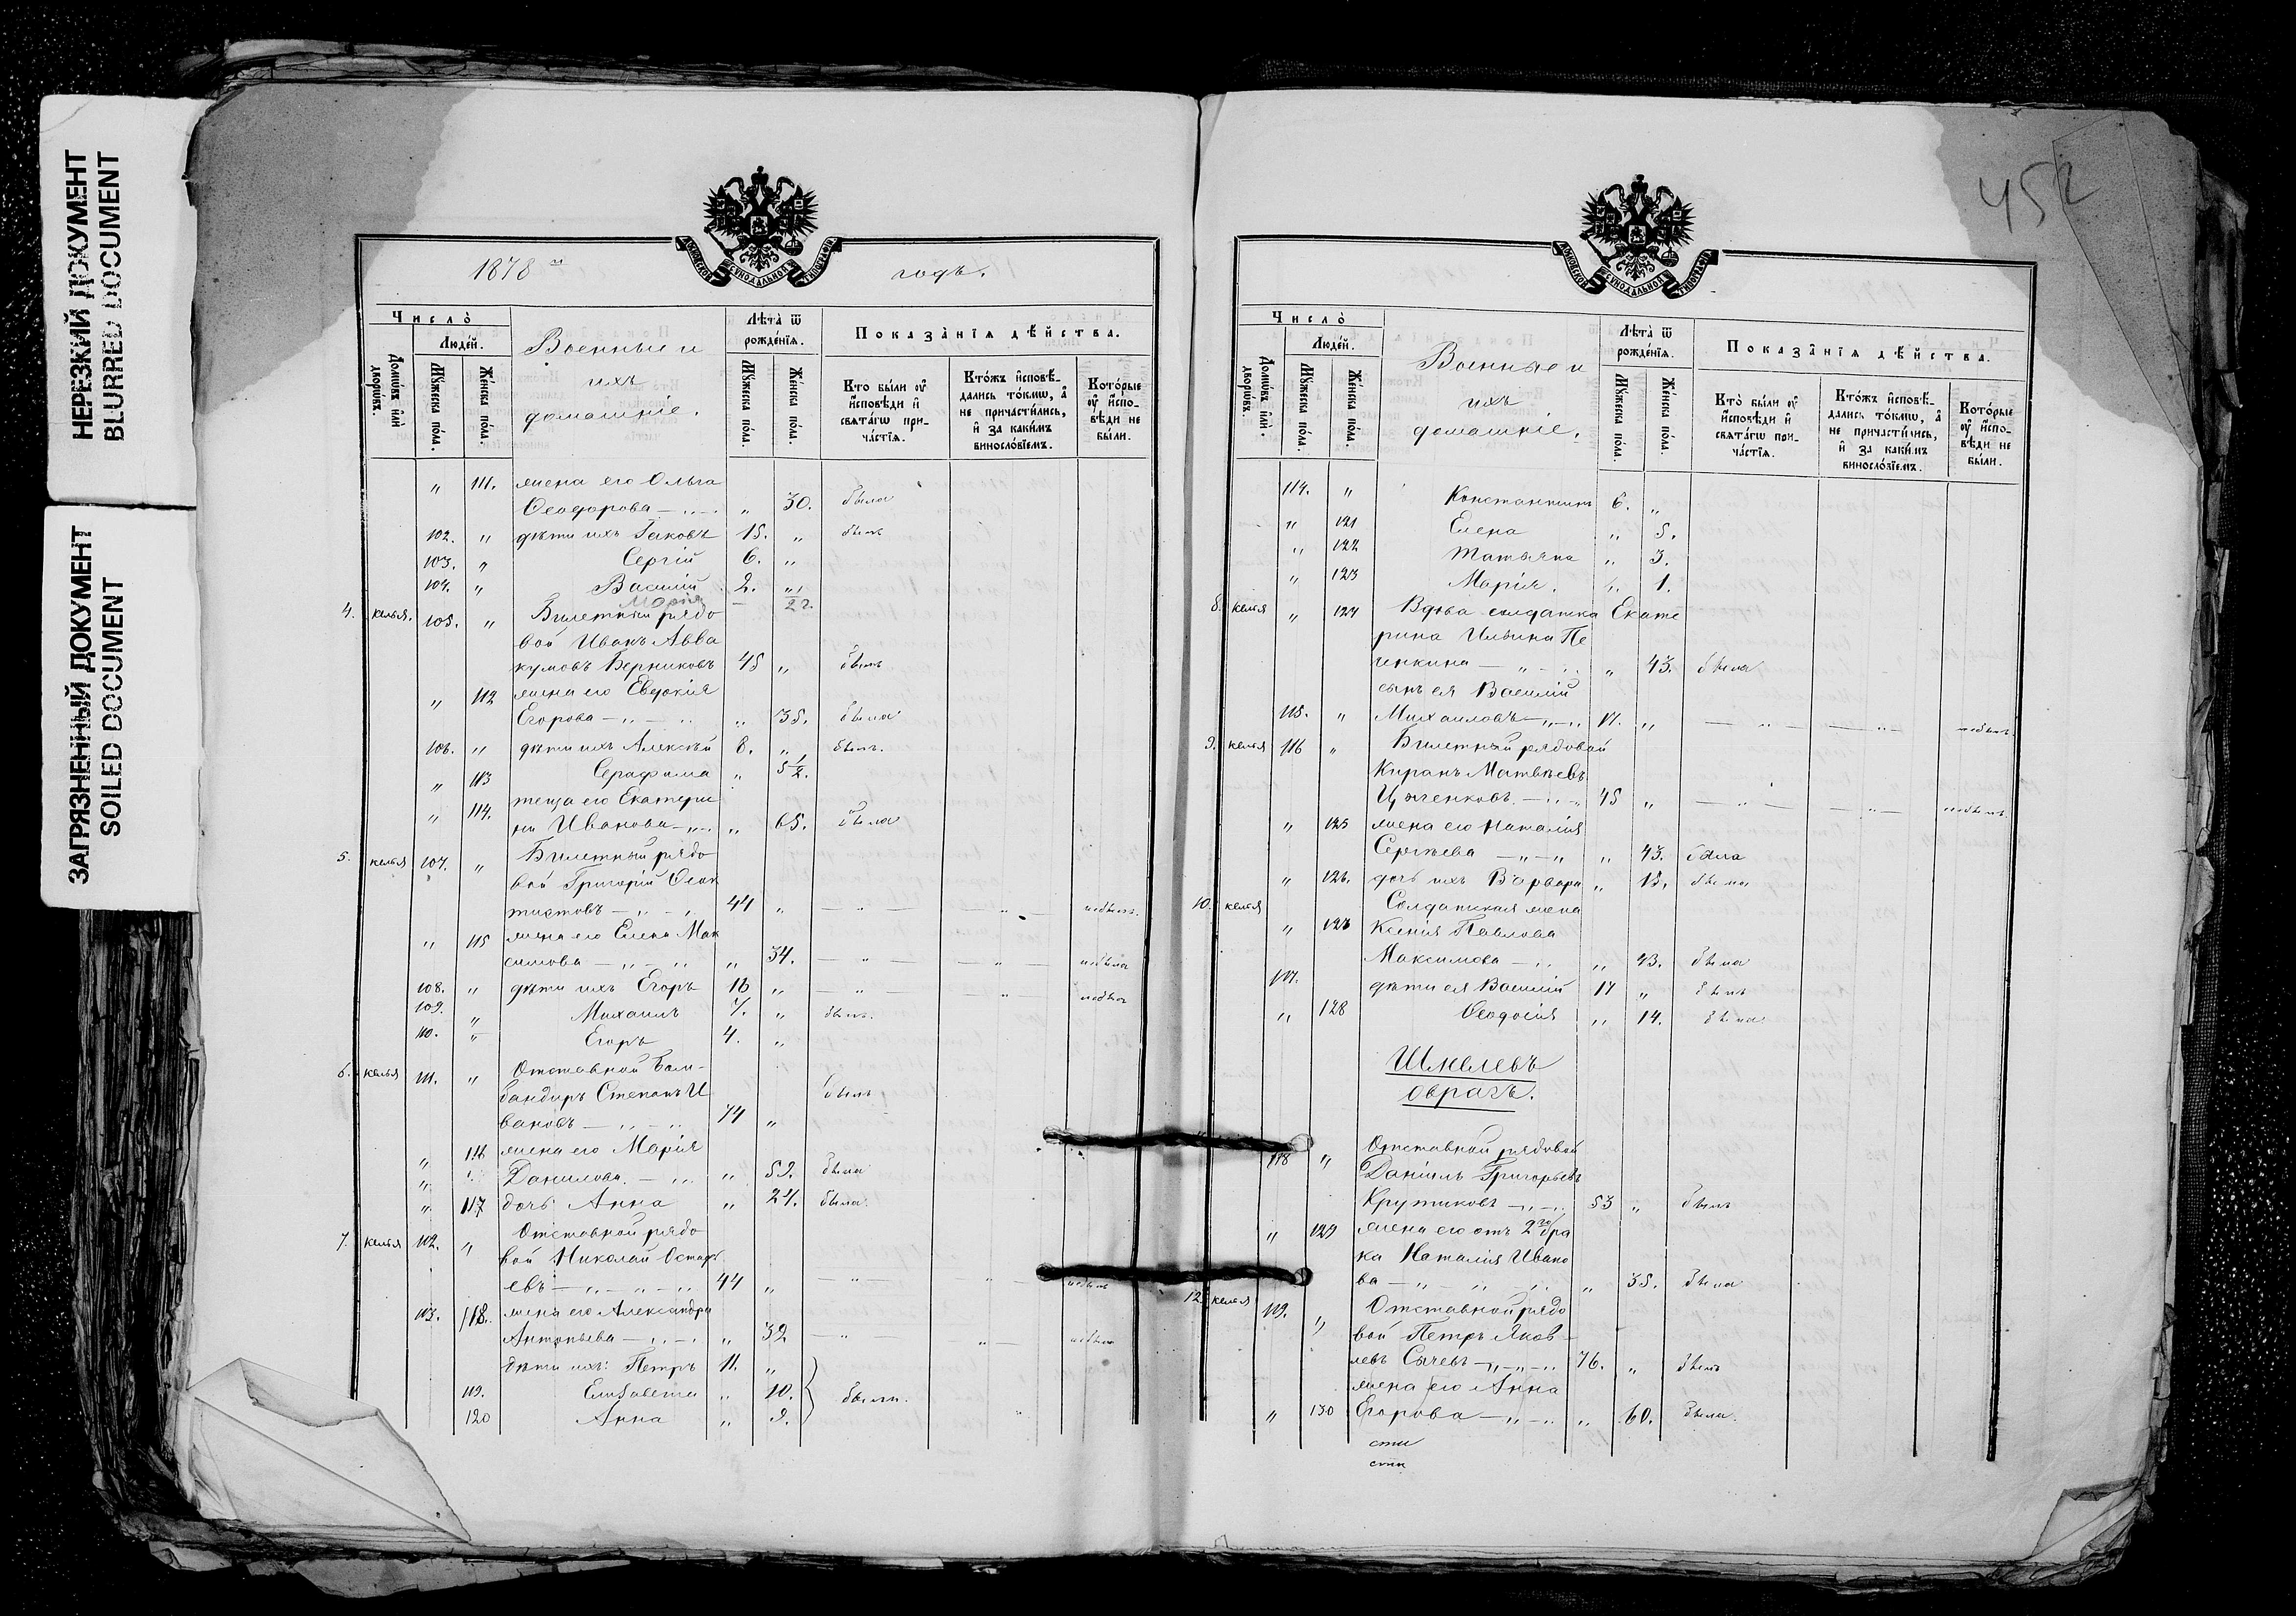 НЕРЕЗКИЙ ДОКУМЕНТ
BLURRED DOCUMENT
ЗАГРЯЗНЕННЫЙ ДОКУМЕНТ
SOILED DOCUMENT
1878 й годъ.
МОСКОВСКОЙ СУНОДАЛЬНОЙ ТИПОГРАФІИ
Число
Людей.
Домωвъ или дворωвъ.
Мꙋжеска пола.
Женска пола.
Военные и
ихъ
домашніе.
Лѣта ѿ рожденія.
Мꙋжеска пола.
Женска пола.
Показанія дѣйства.
Кто были ᲂу
исповѣди и
свѧтагω при-
частія.
Ктожъ исповѣ-
дались токмω, а
не причастились,
и за какимъ
винословіемъ.
Которые
ᲂу испо-
вѣди не
были.
„ 111. жена его Ольга
Ѳеодорова — „ — „ 30. была
102. „ дѣти ихъ Іаковъ 15. „ былъ
103. „ Сергій 6. „
104. „ Василій 2. „
Марія — 1/2 г.
4. келья. 105. „ Билетный рядо
вой Иванъ Авва
кумовъ Верниковъ 45 „ былъ
„ 112 жена его Евдокія
Егорова — „ — „ „ 35. была
106. „ дѣти ихъ Алексѣй 8. „ былъ.
„ 113 Серафима „ 5 1/2.
„ 114. теща его Екатери
на Иванова — „ — „ 65. была
5. келья 107. „ Билетный рядо
вой Григорій Ѳеок
тистовъ — „ — „ 44 „ — „ — „ — небылъ.
„ 115 жена его Елена Мак
симова — „ — „ „ 34. — „ — „ — небыла
108. „ дѣти ихъ Егоръ 16 „ — „ — „ — небылъ
109. „ Михаилъ 7. „ былъ.
110. „ Егоръ 4. „
6. келья 111. „ Отставной Бом-
бандиръ Степанъ И
вановъ — „ — „ 74 „ былъ
„ 116 жена его Марія
„ Данилова. — „ „ 59. была
„ 117 дочь Анна „ 24. была.
7. келья 112. „ Отставной рядо
вой Николай Остафь
евъ — „ — „ — „ 44 „ — „ — „ — небылъ
113. 118. жена его Александра
Антоньева — „ — „ 32 — „ — „ — небыла
дѣти ихъ: Петръ 11. „
119. Елизавета „ 10. были.
120 Анна „ 9.
452
МОСКОВСКОЙ СУНОДАЛЬНОЙ ТИПОГРАФІИ
Число
Людей.
Домωвъ или дворωвъ.
Мꙋжеска пола.
Женска пола.
Военные и
ихъ
домашніе.
Лѣта ѿ рожденія.
Мꙋжеска пола.
Женска пола.
Показанія дѣйства.
Кто были ᲂу
исповѣди и
свѧтагω при-
частія.
Ктожъ исповѣ-
дались токмω, а
не причастились,
и за какимъ
винословіемъ.
Которые
ᲂу испо-
вѣди не
были.
114. „ Константинъ 6. „
„ 121 Елена „ 5.
„ 122 Татьяна „ 3.
„ 123 Марія. „ 1.
8. келья „ 124 Вдова солдатка Екате
рина Ильина Пе
ченкина — „ — „ „ 43. была
сынъ ея Василій
115. „ Михаиловъ — „ — „ 17. „ — „ — „ — небылъ
9. келья 116 „ Билетный рядовой
Киранъ Матвѣевъ
Цыченковъ — „ — „ 45 „ — „ — „ — небылъ
„ 125 жена его Наталія
Сергѣева — „ — „ „ 43. была
„ 126. дочь ихъ Варвара „ 13. была
10. келья Солдатская жена
„ 127 Ксенія Павлова
Максимова — „ „ 43. была
117. дѣти ея Василій 17 „ былъ
„ 128 Ѳеодосія „ 14. была
Шмелевъ
оврагъ.
118 „ Отставной рядовой
Даніилъ Григорьевъ
Крутиковъ — „ — 53 „ былъ
„ 129 жена его отъ 2го бра
ка Наталія Ивано
ва — „ „ „ „ 35. была
12. келья 119. „ Отставной рядо
вой Петръ Яков-
левъ Сычевъ — „ — „ 76. „ былъ
жена его Анна
„ 130 Егорова — „ — „ „ 60. была.